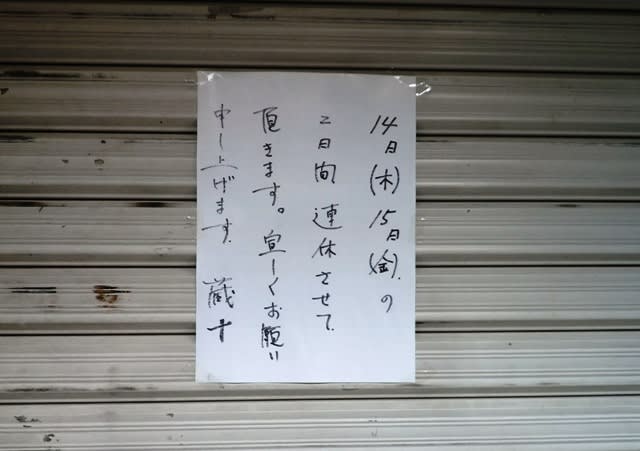 14日(木)15日(金)の
二日間連休させて
頂きます。宜しくお願い
申し上げます。蔵十